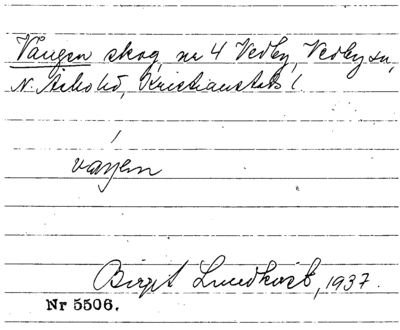 Vången skog, nr 4 Vedby, Vedby sn,
N. Åsbo hd, Kristianstads l.
vången
Birgit Lundkvist, 1937.
Nr 5506.